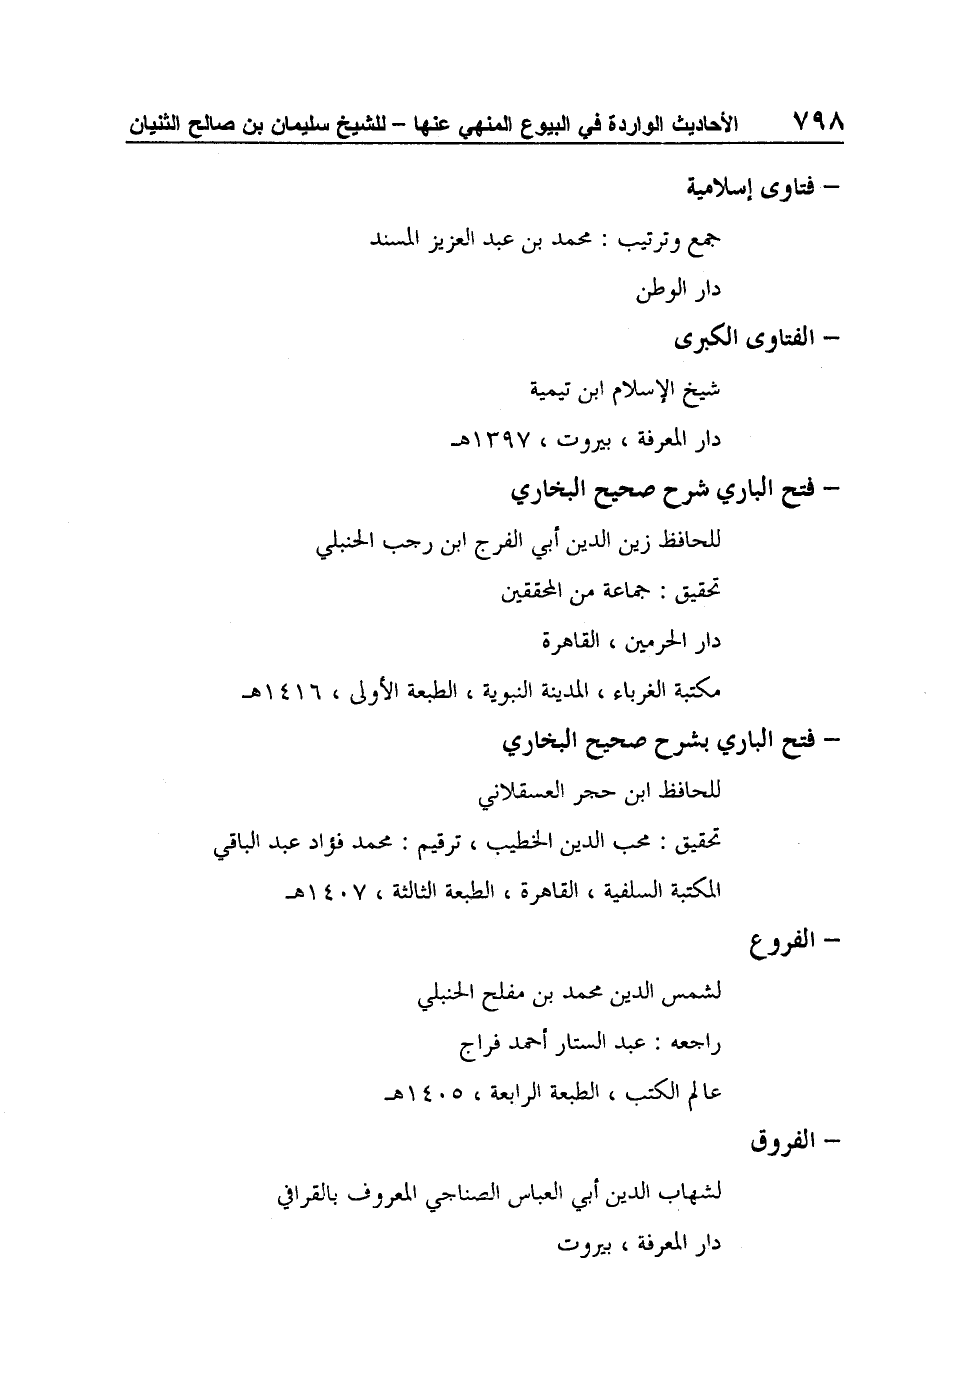 ٧٩٨ الأحاديث الواردة في البيوع المنهي عنها – للشيخ سليمان بن صالح الثنيان
– فتاوى إسلامية
جمع وترتيب : محمد بن عبد العزيز المسند
دار الوطن
– الفتاوى الكبرى
شيخ الإسلام ابن تيمية
دار المعرفة ، بيروت ، ١٣٩٧هـ
– فتح الباري شرح صحيح البخاري
للحافظ زين الدين أبي الفرج ابن رجب الحنبلي
تحقيق : جماعة من المحققين
دار الحرمين ، القاهرة
مكتبة الغرباء ، المدينة النبوية ، الطبعة الأولى ، ١٤١٦هـ
– فتح الباري بشرح صحيح البخاري
للحافظ ابن حجر العسقلاني
تحقيق : محب الدين الخطيب ، ترقيم : محمد فؤاد عبد الباقي
المكتبة السلفية ، القاهرة ، الطبعة الثالثة ، ١٤٠٧هـ
– الفروع
لشمس الدين محمد بن مفلح الحنبلي
راجعه : عبد الستار أحمد فراج
عالم الكتب ، الطبعة الرابعة ، ١٤٠٥هـ
– الفروق
لشهاب الدين أبي العباس الصناجي المعروف بالقرافي
دار المعرفة ، بيروت